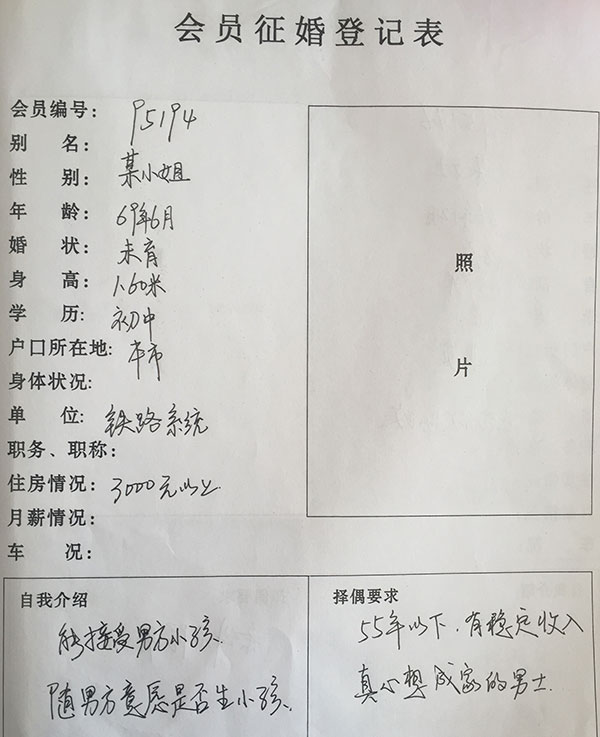 会员征婚登记表
会员编号: 95194
别 名:
性 别: 某小姐
年 龄: 69年6月
婚 状: 未育
身 高: 1.60米
学 历: 初中
户口所在地: 本市
身体状况:
单 位: 铁路系统
职务、职称:
住房情况: 3000元以上
月薪情况:
车 况:
照
片
自我介绍
能接受男方小孩、
随男方意愿是否生小孩、
择偶要求
55年以下、有稳定收入
真心想成家的男士.